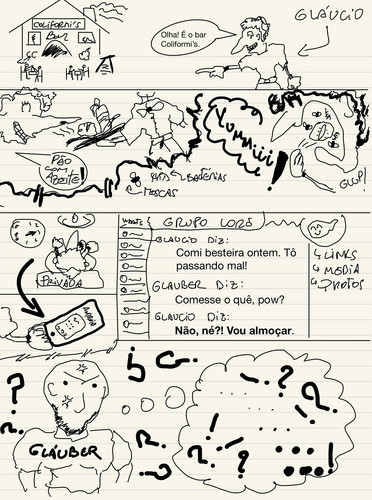 COLIFORMI'S
Bar
Olha! É o bar
Coliformi's.
GLÁUCIO
PÃO
COM
AZEITE!
BACTÉRIAS
MOSCAS
YUMMIII!
GLUP!
PRIVADA
GRUPO LORE
GLAUCIO DIZ:
Comi besteira ontem. Tô
passando mal!
GLAUBER DIZ:
Comesse o quê, pow?
GLAUCIO DIZ:
Não, né?! Vou almoçar.
LINKS
MEDIA
PHOTOS
GLÁUBER